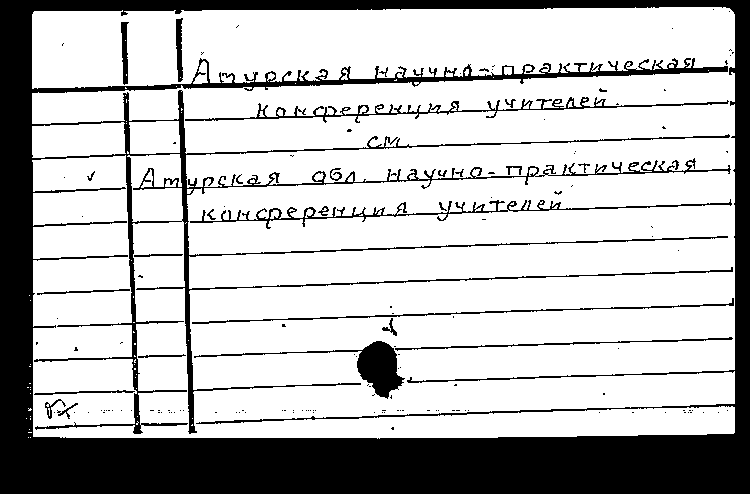 Атурская научно-практическая
конференция учителей.
см.
✓ Атурская обл. научно-практическая
конференция учителей